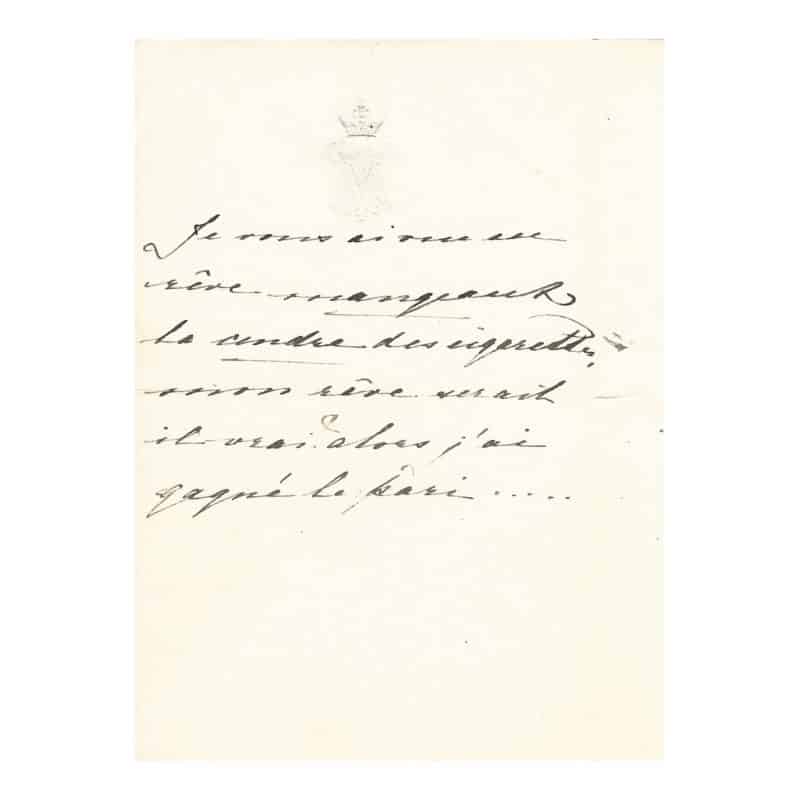 Je vous ai vu en
rêve mangeant
la cendre des cigarettes,
mon rêve serait
il vrai? alors j'ai
gagné le pari.....